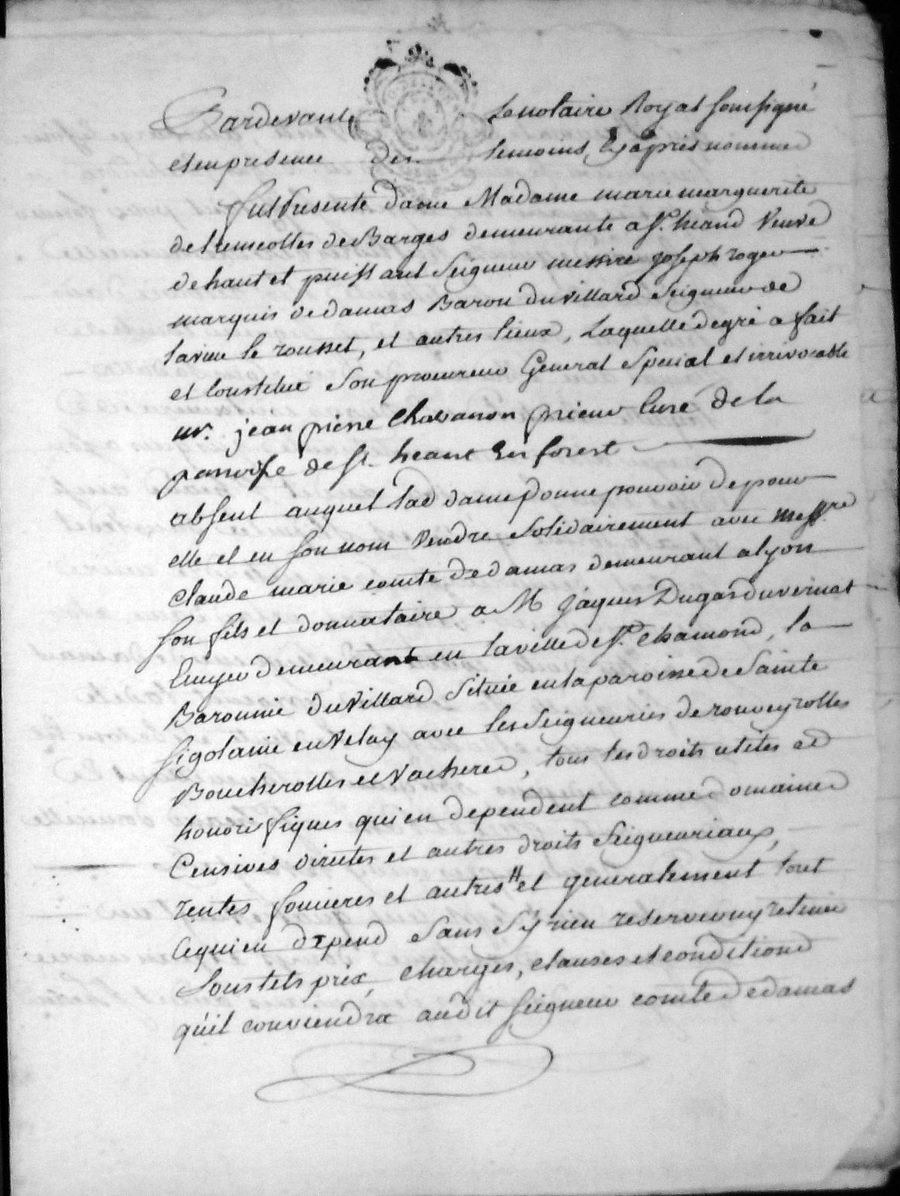 Pardevant le notaire Royal soussigné
et en presence des temoins Cyaprès nommes
fut Presente dame Madame marie marguerite
de Barges demeurante a St. heand Veuve
de haut et puissant Seigneur messire joseph roger
marquis de damas Baron du villard Seigneur de
le rousset, et autres lieux, Laquelle de gré a fait
et Constitué Son procureur General Special et irrevocable
mr. jean pierre Chavanon prieur Curé de la
parroisse de St. heant En forest
absent auquel lad dame Donne pouvoir de pour
elle et en son nom Vendre Solidairement avec messre
Claude marie comte De damas demeurant a lyon
son fils et donnataire a Mr jaques Dugas du vernat
Ecuyer demeurant en la ville de St. chamond, la
Baronnie du Villard, Située en la paroisse de Sainte
Sigolaine en Velay avec les Seigneuries de rouveyrolles
Boucherolles et Vacheres, tous les droits utiles et
honorifiques qui en dependent comme Domaines
Censives directes et autres droits Seigneuriaux,
rentes foncieres et autres et generalement tout
ce qui en depend Sans S'y rien reserver ny retenir
Sous tels prix, charges, clauses et conditions
qu'il conviendra audit Seigneur comte De damas